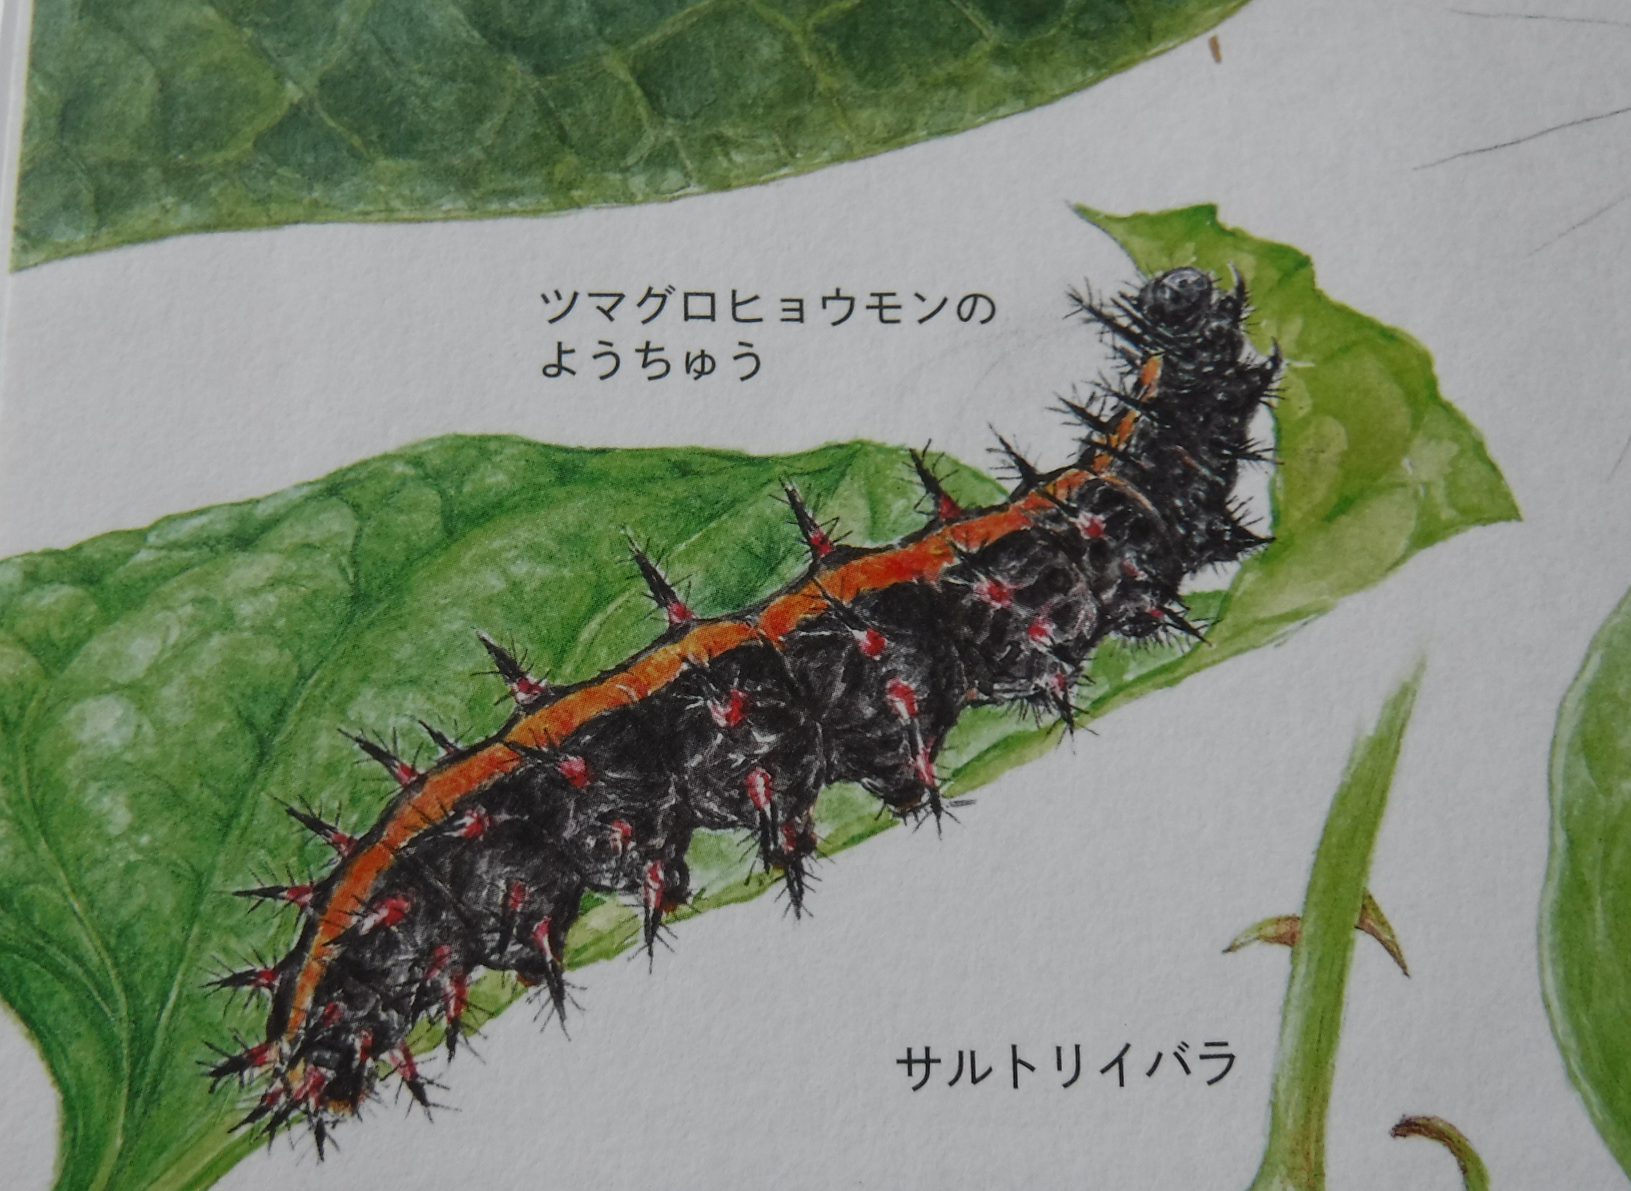 ツマグロヒョウモンの
ようちゅう
サルトリイバラ